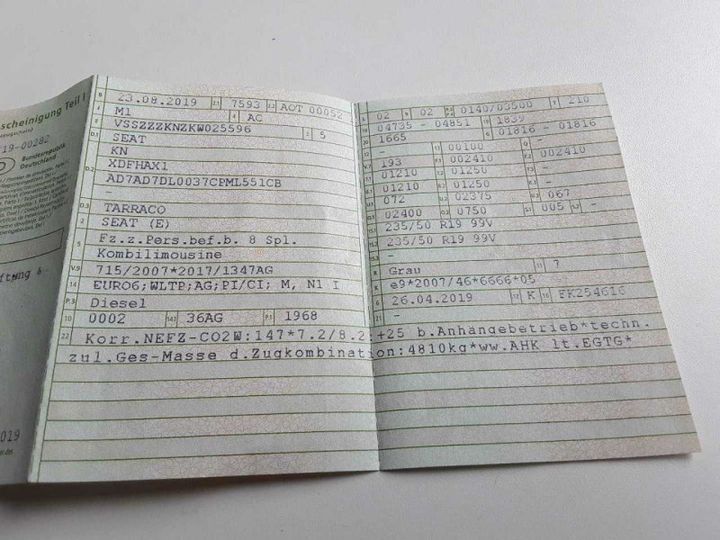 scheinigung Teil I
19-00282
Bundesrepublik
Deutschland
ftung 6
019
B 23.08.2019 2.1 7593 2.2 AOT 00052
J M1 4 AC
E VSSZZZKNZKW025596 3 5
D.1 SEAT
KN
D.2 XDFHAX1
AD7AD7DL0037CPML551CB
-
D.3 TARRACO
2 SEAT (E)
5 Fz.z.Pers.bef.b. 8 Spl.
Kombilimousine
V.9 715/2007*2017/1347AG
14 EURO6;WLTP;AG;PI/CI; M, N1 I
P.3 Diesel
10 0002 14.1 36AG P.1 1968
22 Korr.NEFZ-CO2W:147*7.2/8.2:+25 b.Anhängebetrieb*techn.
zul.Ges-Masse d.Zugkombination:4810kg*ww.AHK lt.EGTG*
02 9 02 P.2 0140/03500 T 210
18 04735 - 04851 19 1839
20 1665 G 01816 - 01816
12 - 13 00100 Q -
V.7 193 F.1 002410 F.2 002410
01210 01250 -
01210 01250 -
U.1 072 U.2 02375 U.3 067
O.1 02400 O.2 0750 S.1 005 S.2 -
15.1 235/50 R19 99V
15.2 235/50 R19 99V
-
R Grau 11 7
K e9*2007/46*6666*05
6 26.04.2019 17 K 16 FK254616
21 -